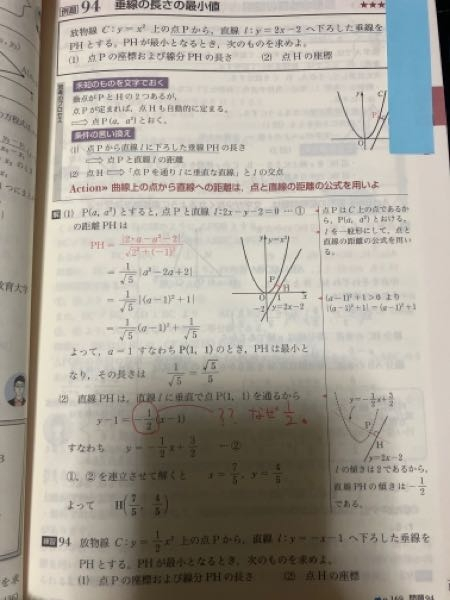 例題 94 垂線の長さの最小値 ★★★
放物線 C：y＝x² 上の点Pから，直線 l：y＝2x－2 へ下ろした垂線を
PHとする。PHが最小となるとき，次のものを求めよ。
(1) 点Pの座標および線分PHの長さ (2) 点Hの座標
未知のものを文字でおく
動点がPとHの2つあるが，
点Pが定まれば，点Hも自動的に定まる。
⟹ 点P(a, a²)とおく。
条件の言い換え
(1) 点Pから直線lに下ろした垂線PHの長さ
⟹ 点Pと直線lの距離
(2) 点H ⟹「点Pを通りlに垂直な直線」とlの交点
Action» 曲線上の点から直線への距離は，点と直線の距離の公式を用いよ
解 (1) P(a, a²)とすると，点Pと直線 l：2x－y－2＝0 …①
の距離PHは
PH＝|2・a－a²－2|/√(2²＋(－1)²)
＝1/√5 |a²－2a＋2|
＝1/√5 |(a－1)²＋1|
＝1/√5 (a－1)²＋1/√5
よって，a＝1 すなわち P(1, 1) のとき，PHは最小と
なり，その長さは 1/√5＝√5/5
(2) 直線PHは，直線lに垂直で点P(1, 1)を通るから
y－1＝－1/2(x－1) ?? なぜ 1/2。
すなわち y＝－1/2x＋3/2 …②
①，②を連立させて解くと x＝7/5，y＝4/5
よって H(7/5, 4/5)
点PはC上の点であるか
ら，P(a, a²)とおける。
lを一般形にして，点と
直線の距離の公式を用い
る。
(a－1)²＋1＞0 より
|(a－1)²＋1|＝(a－1)²＋1
y y＝x²
P
H
O 1 x
－2 y＝2x－2
y＝－1/2x＋3/2
P
H
y＝2x－2
lの傾きは2であるから，
直線PHの傾きは－1/2
である。
練習 94 放物線 C：y＝1/2x² 上の点Pから，直線 l：y＝－x－1 へ下ろした垂線を
PHとする。PHが最小となるとき，次のものを求めよ。
(1) 点Pの座標および線分PHの長さ (2) 点Hの座標
p.169 問題94
教育大学